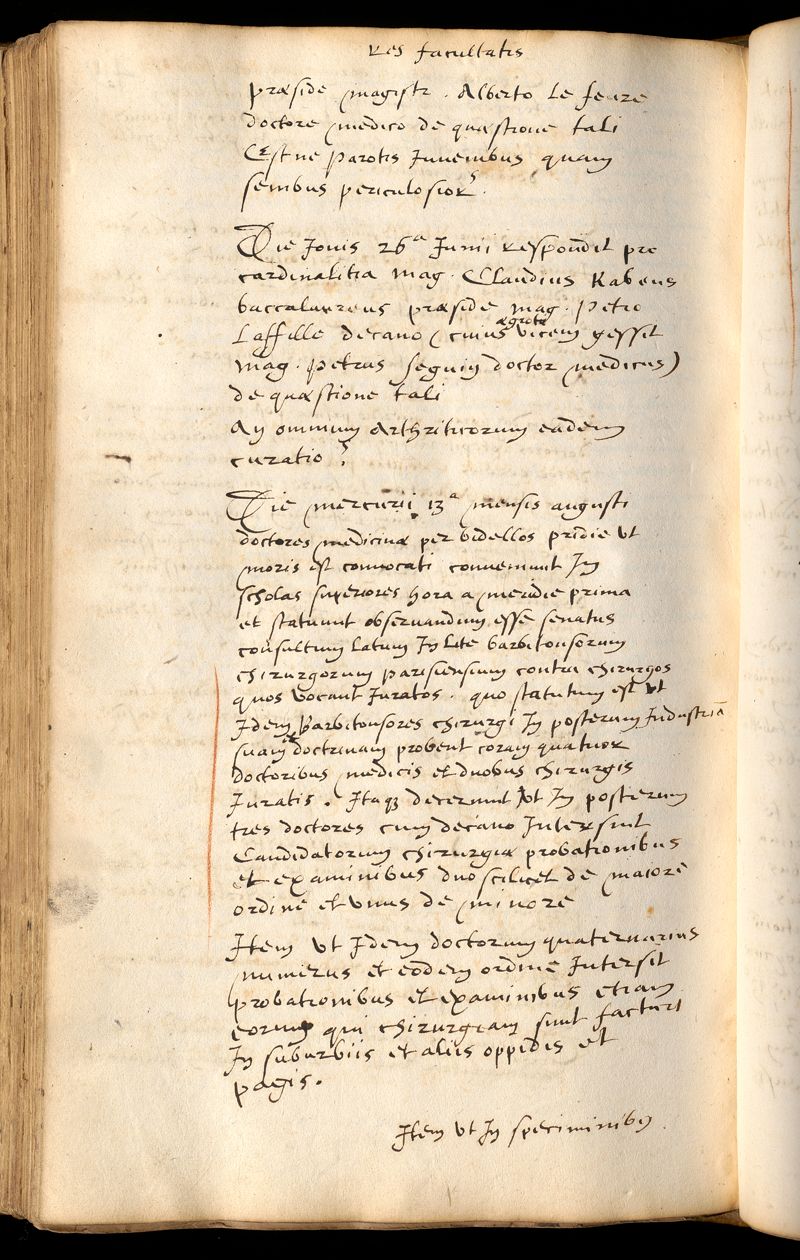 Res facultatis
præside magistr. Alberto Le fevre
doctore medico de quæstione tali
Estne parotis Juvenibus quam
senibus periculosior?
Die Jovis 26a Junii respondit pro
cardinalitia mag. Claudius Rabens
baccalaureus præside mag. Petro
Laffille decano (cuius ægroti vicem gessit
mag. Petrus seguin doctor medicus)
de quæstione tali
An omnium Arthriticorum eadem
curatio?
Die mercurii 13a mensis augusti
doctores medicinæ per bidellos pridie ut
moris est convocati convenerunt In
scholas superiores hora a meridie prima
et statuunt observandum esse senatus
consultum latum In lite barbitonsorum
chirurgorum parisiensium contra chirurgos
quos vocant Juratos. quo statutum est ut
Idem Barbitonsores chirurgi In posterum Industriā
suam et doctrinam probent coram quatuor
doctoribus medicis et duobus chirurgis
Juratis. Itaq; decernunt Ut In posterum
tres doctores cum decano Intersint
Candidatorum chirurgiæ probationibus
et examinibus duo scilicet de maiore
ordine et unus de minore
Item ut Idem doctorum quaternarius
numerus et eodem ordine Intersit
probationibus et examinibus etiam
eorum qui chirurgiam sunt facturi
In suburbiis et aliis oppidis et
pagis.
Item ut In speciminibus